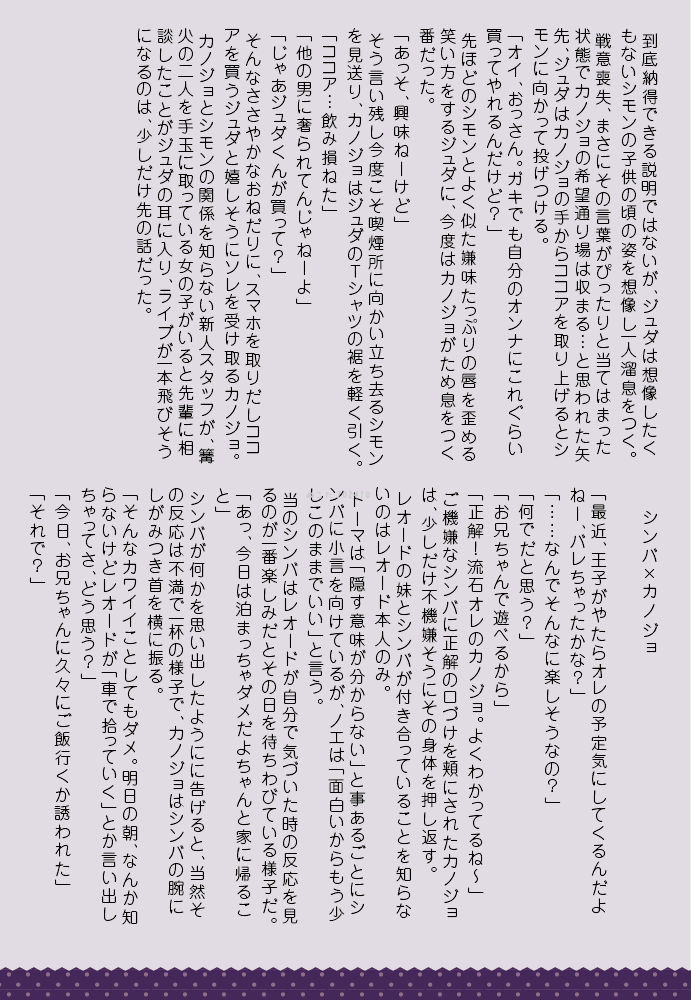 到底納得できる説明ではないが、ジュダは想像したく
もないシモンの子供の頃の姿を想像し一人溜息をつく。
戦意喪失、まさにその言葉がぴったりと当てはまった
状態でカノジョの希望通り場は収まる…と思われた矢
先、ジュダはカノジョの手からココアを取り上げるとシ
モンに向かって投げつける。
「オイ、おっさん。ガキでも自分のオンナにこれぐらい
買ってやれるんだけど？」
先ほどのシモンとよく似た嫌味たっぷりの唇を歪める
笑い方をするジュダに、今度はカノジョがため息をつく
番だった。
「あっそ、興味ねーけど」
そう言い残し今度こそ喫煙所に向かい立ち去るシモン
を見送り、カノジョはジュダのTシャツの裾を軽く引く。
「ココア…飲み損ねた」
「他の男に奢られてんじゃねーよ」
「じゃあジュダくんが買って？」
そんなささやかなおねだりに、スマホを取りだしココ
アを買うジュダと嬉しそうにソレを受け取るカノジョ。
カノジョとシモンの関係を知らない新人スタッフが、篝
火の二人を手玉に取っている女の子がいると先輩に相
談したことがジュダの耳に入り、ライブが一本飛びそう
になるのは、少しだけ先の話だった。
シンバ×カノジョ
「最近、王子がやたらオレの予定気にしてくるんだよ
ねー、バレちゃったかな？」
「……なんでそんなに楽しそうなの？」
「何でだと思う？」
「お兄ちゃんで遊べるから」
「正解！流石オレのカノジョ。よくわかってるね～」
ご機嫌なシンバに正解の口づけを頬にされたカノジョ
は、少しだけ不機嫌そうにその身体を押し返す。
レオードの妹とシンバが付き合っていることを知らな
いのはレオード本人のみ。
トーマは「隠す意味が分からない」と事あるごとにシ
ンバに小言を向けているが、ノエは「面白いからもう少
しこのままでいい」と言う。
当のシンバはレオードが自分で気づいた時の反応を見
るのが一番楽しみだとその日を待ちわびている様子だ。
「あっ、今日は泊まっちゃダメだよちゃんと家に帰るこ
と」
シンバが何かを思い出したようにに告げると、当然そ
の反応は不満で一杯の様子で、カノジョはシンバの腕に
しがみつき首を横に振る。
「そんなカワイイことしてもダメ。明日の朝、なんか知
らないけどレオードが「車で拾っていく」とか言い出し
ちゃってさ、どう思う？」
「今日、お兄ちゃんに久々にご飯行くか誘われた」
「それで？」